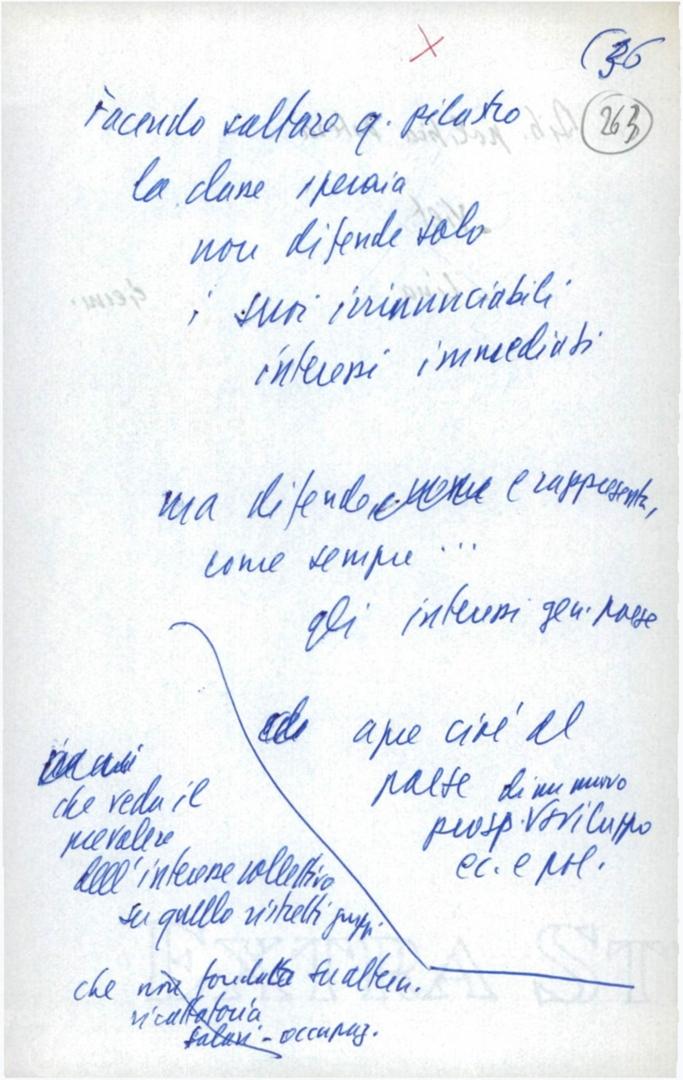 36
263
Facendo saltare q. pilastro
la classe operaia
non difende solo
i suoi irrinunciabili
interessi immediati
ma difende e rappresenta,
come sempre ...
gli interessi gen. paese
apre cioè al
paese di un nuovo
prosp. sviluppo
ec. e pol.
che veda il
prevalere
dell'interesse collettivo
su quello ristretti gruppi.
che non fondata su altern.
ricattatoria
salari - occupaz.